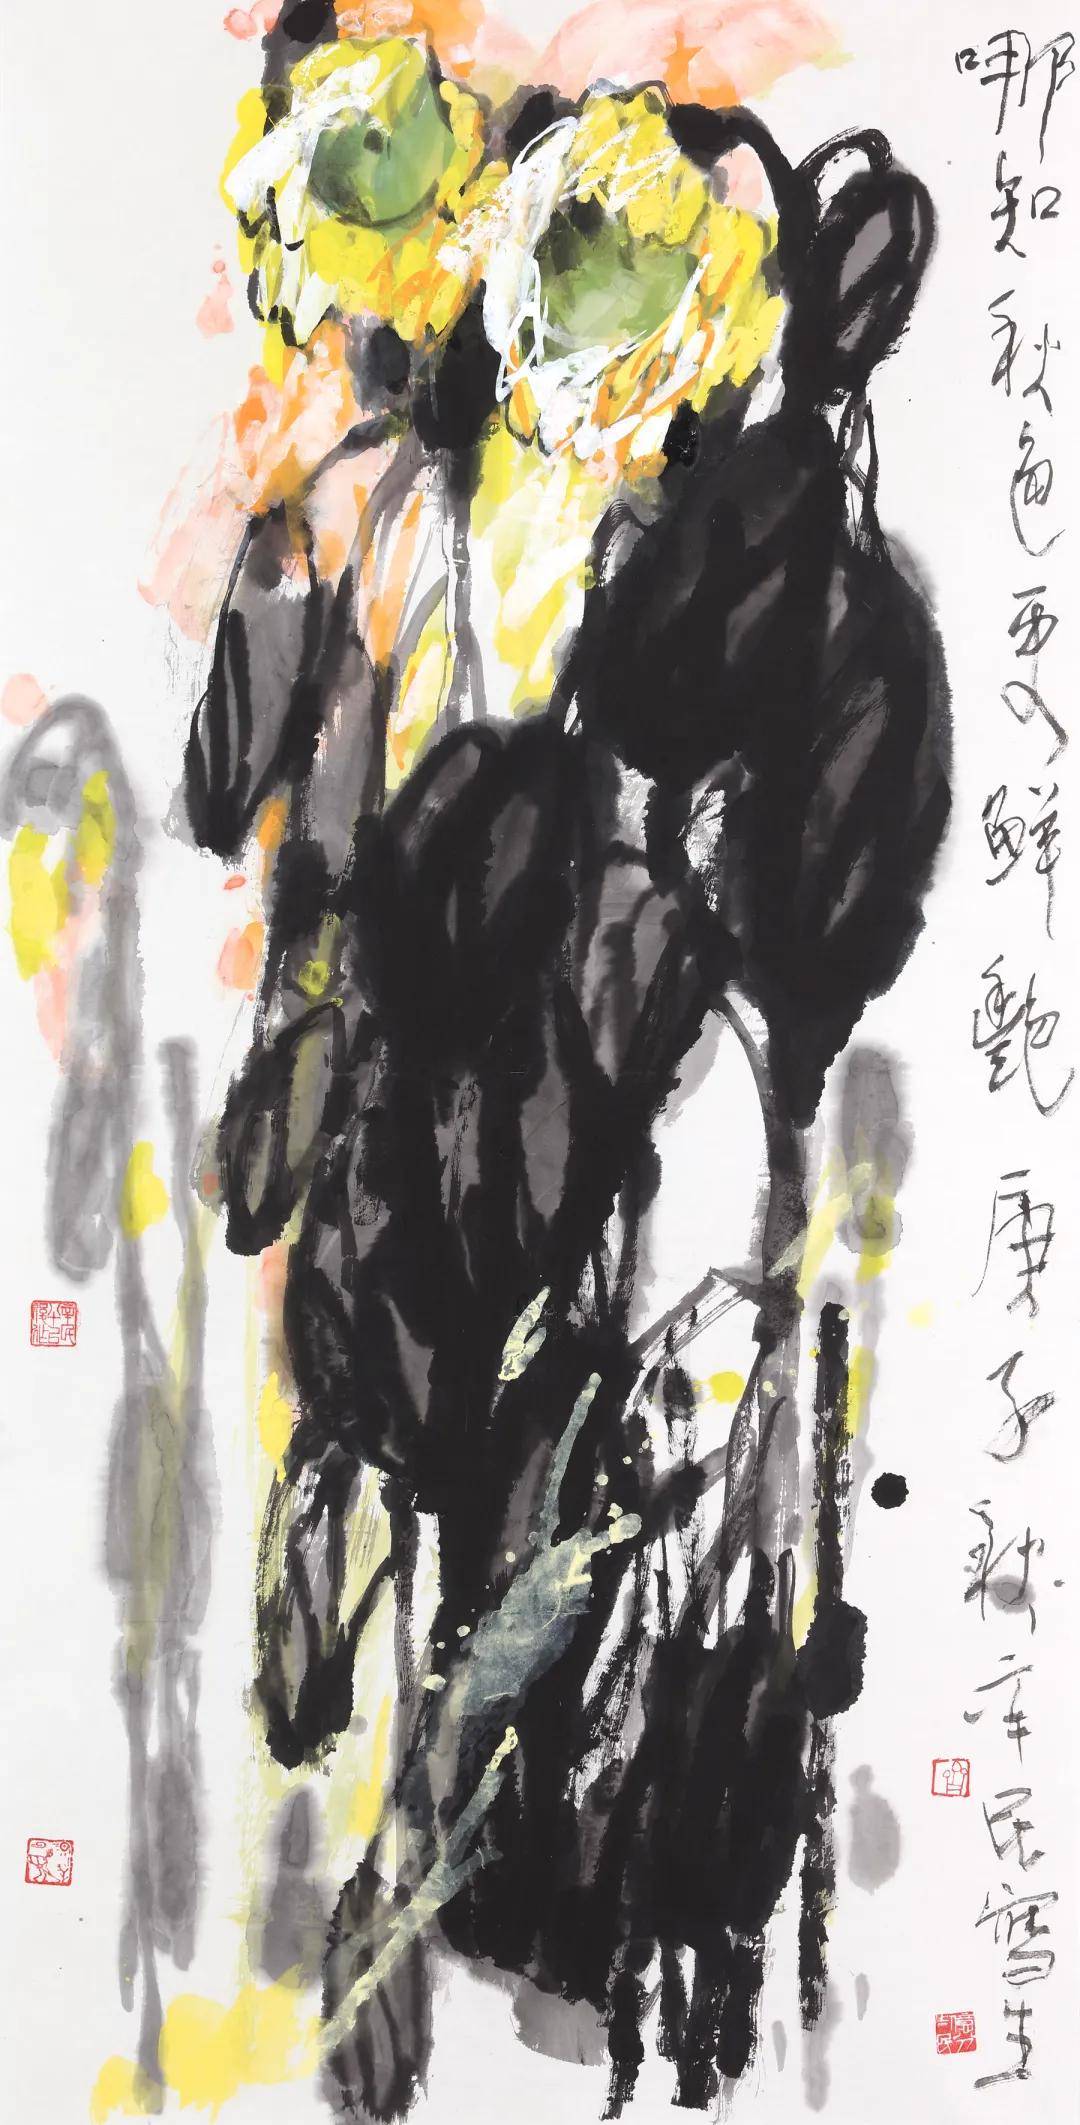 哪知秋色更鲜艳庚子秋辛民写生